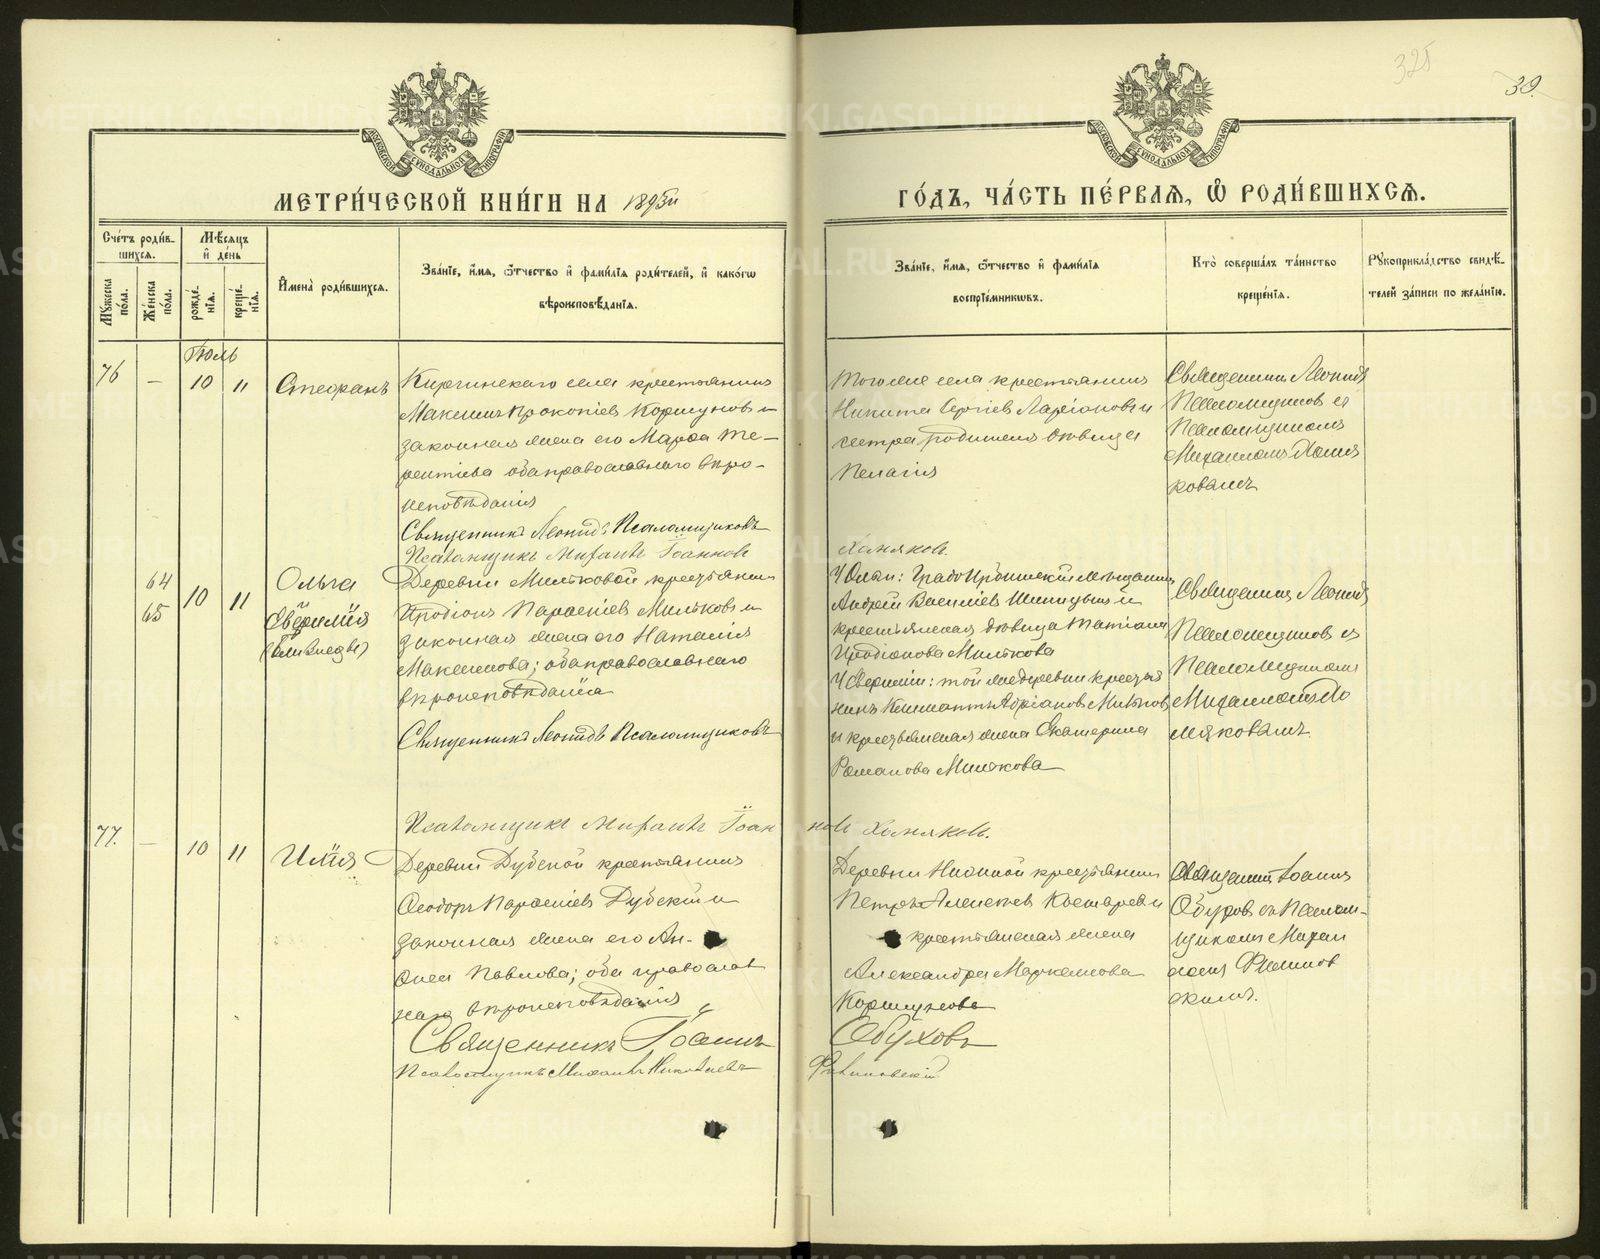 325
39.
МОСКОВСКОЙ СѴНОДАЛЬНОЙ ТИПОГРАФИИ
МОСКОВСКОЙ СѴНОДАЛЬНОЙ ТИПОГРАФИИ
МЕТРИ́ЧЕСКОЙ КНИ́ГИ НА 1895й
ГО́ДЪ, ЧА́СТЬ ПЕ́РВАЯ, Ѽ РОДИ́ВШИХСЯ.
Сче́тъ роди́в-
шихся.
Мꙋ́жеска по́ла.
Же́нска по́ла.
Мѣ́сяцъ и҆ де́нь
рожде́-нїя.
креще́-нїя.
И҆мена̀ роди́вшихся.
Зва́нїе, и҆́мя, ѻ҆́тчество и҆ фами́лїя роди́телей, и҆ како́гѡ
вѣроисповѣ́данїя.
Зва́нїе, и҆́мя, ѻ҆́тчество и҆ фами́лїя
воспрїе́мникѡвъ.
Кто̀ соверша́лъ та́инство
креще́нїя.
Рꙋкоприкла́дство свидѣ́-
телей за́писи по жела́нїю.
Іюль
76 — 10 11 Стефанъ
Киргинскаго села крестьянинъ
Максимъ Прокопіев Коршуновъ и
законная жена его Марѳа Те-
рентіева оба православнаго вѣро-
исповѣданія
Священникъ Леонидъ Псаломщиковъ
Псаломщикъ Михаилъ Іоанновъ
Тогоже села крестьянинъ
Никита Сергіев Ларіоновъ и
сестра родителя дѣвица
Пелагія
Хомяковъ.
Священникъ Леонидъ
Псаломщиков съ
Псаломщикомъ
Михаиломъ Хомя
ковымъ
64 65 10 11
Ольга
Евѳимія
(близнецы)
Деревни Мильковой крестьянинъ
Иродіонъ Парѳеніев Мильковъ и
законная жена его Наталія
Максимова; оба православнаго
вѣроисповѣданія
Священникъ Леонидъ Псаломщиковъ
Псаломщикъ Михаилъ Іоан
новъ Хомяковъ.
У Ольги: Градо Ирбитскій мѣщанинъ
Андрей Василіев Шипицынъ и
крестьянская дѣвица Татіана
Иродіонова Милькова
У Евѳиміи: той же деревни крестья
нинъ Климентъ Адріанов Мильков
и крестьянская жена Екатерина
Романова Милькова
Священникъ Леонидъ
Псаломщиков съ
Псаломщикомъ
Михаиломъ Хо
мяковымъ
77. — 10 11 Илія
Деревни Дубской крестьянинъ
Ѳеодоръ Парѳеніев Дубскій и
законная жена его Ан-
Павлова; оба православ
наго вѣроисповѣданія
Священникъ Іоаннъ
Обуховъ
Псаломщикъ Михаилъ Николаевъ
Филиповскій
Деревни крестьянинъ
Петръ Алексѣев Костарев и
крестьянская жена
Александра Маркелова
Коршунова
Священникъ Іоаннъ
Обухов съ Псалом-
щикомъ Михаи
ломъ Филипов
скимъ.
METRIKI.GASO-URAL.RU